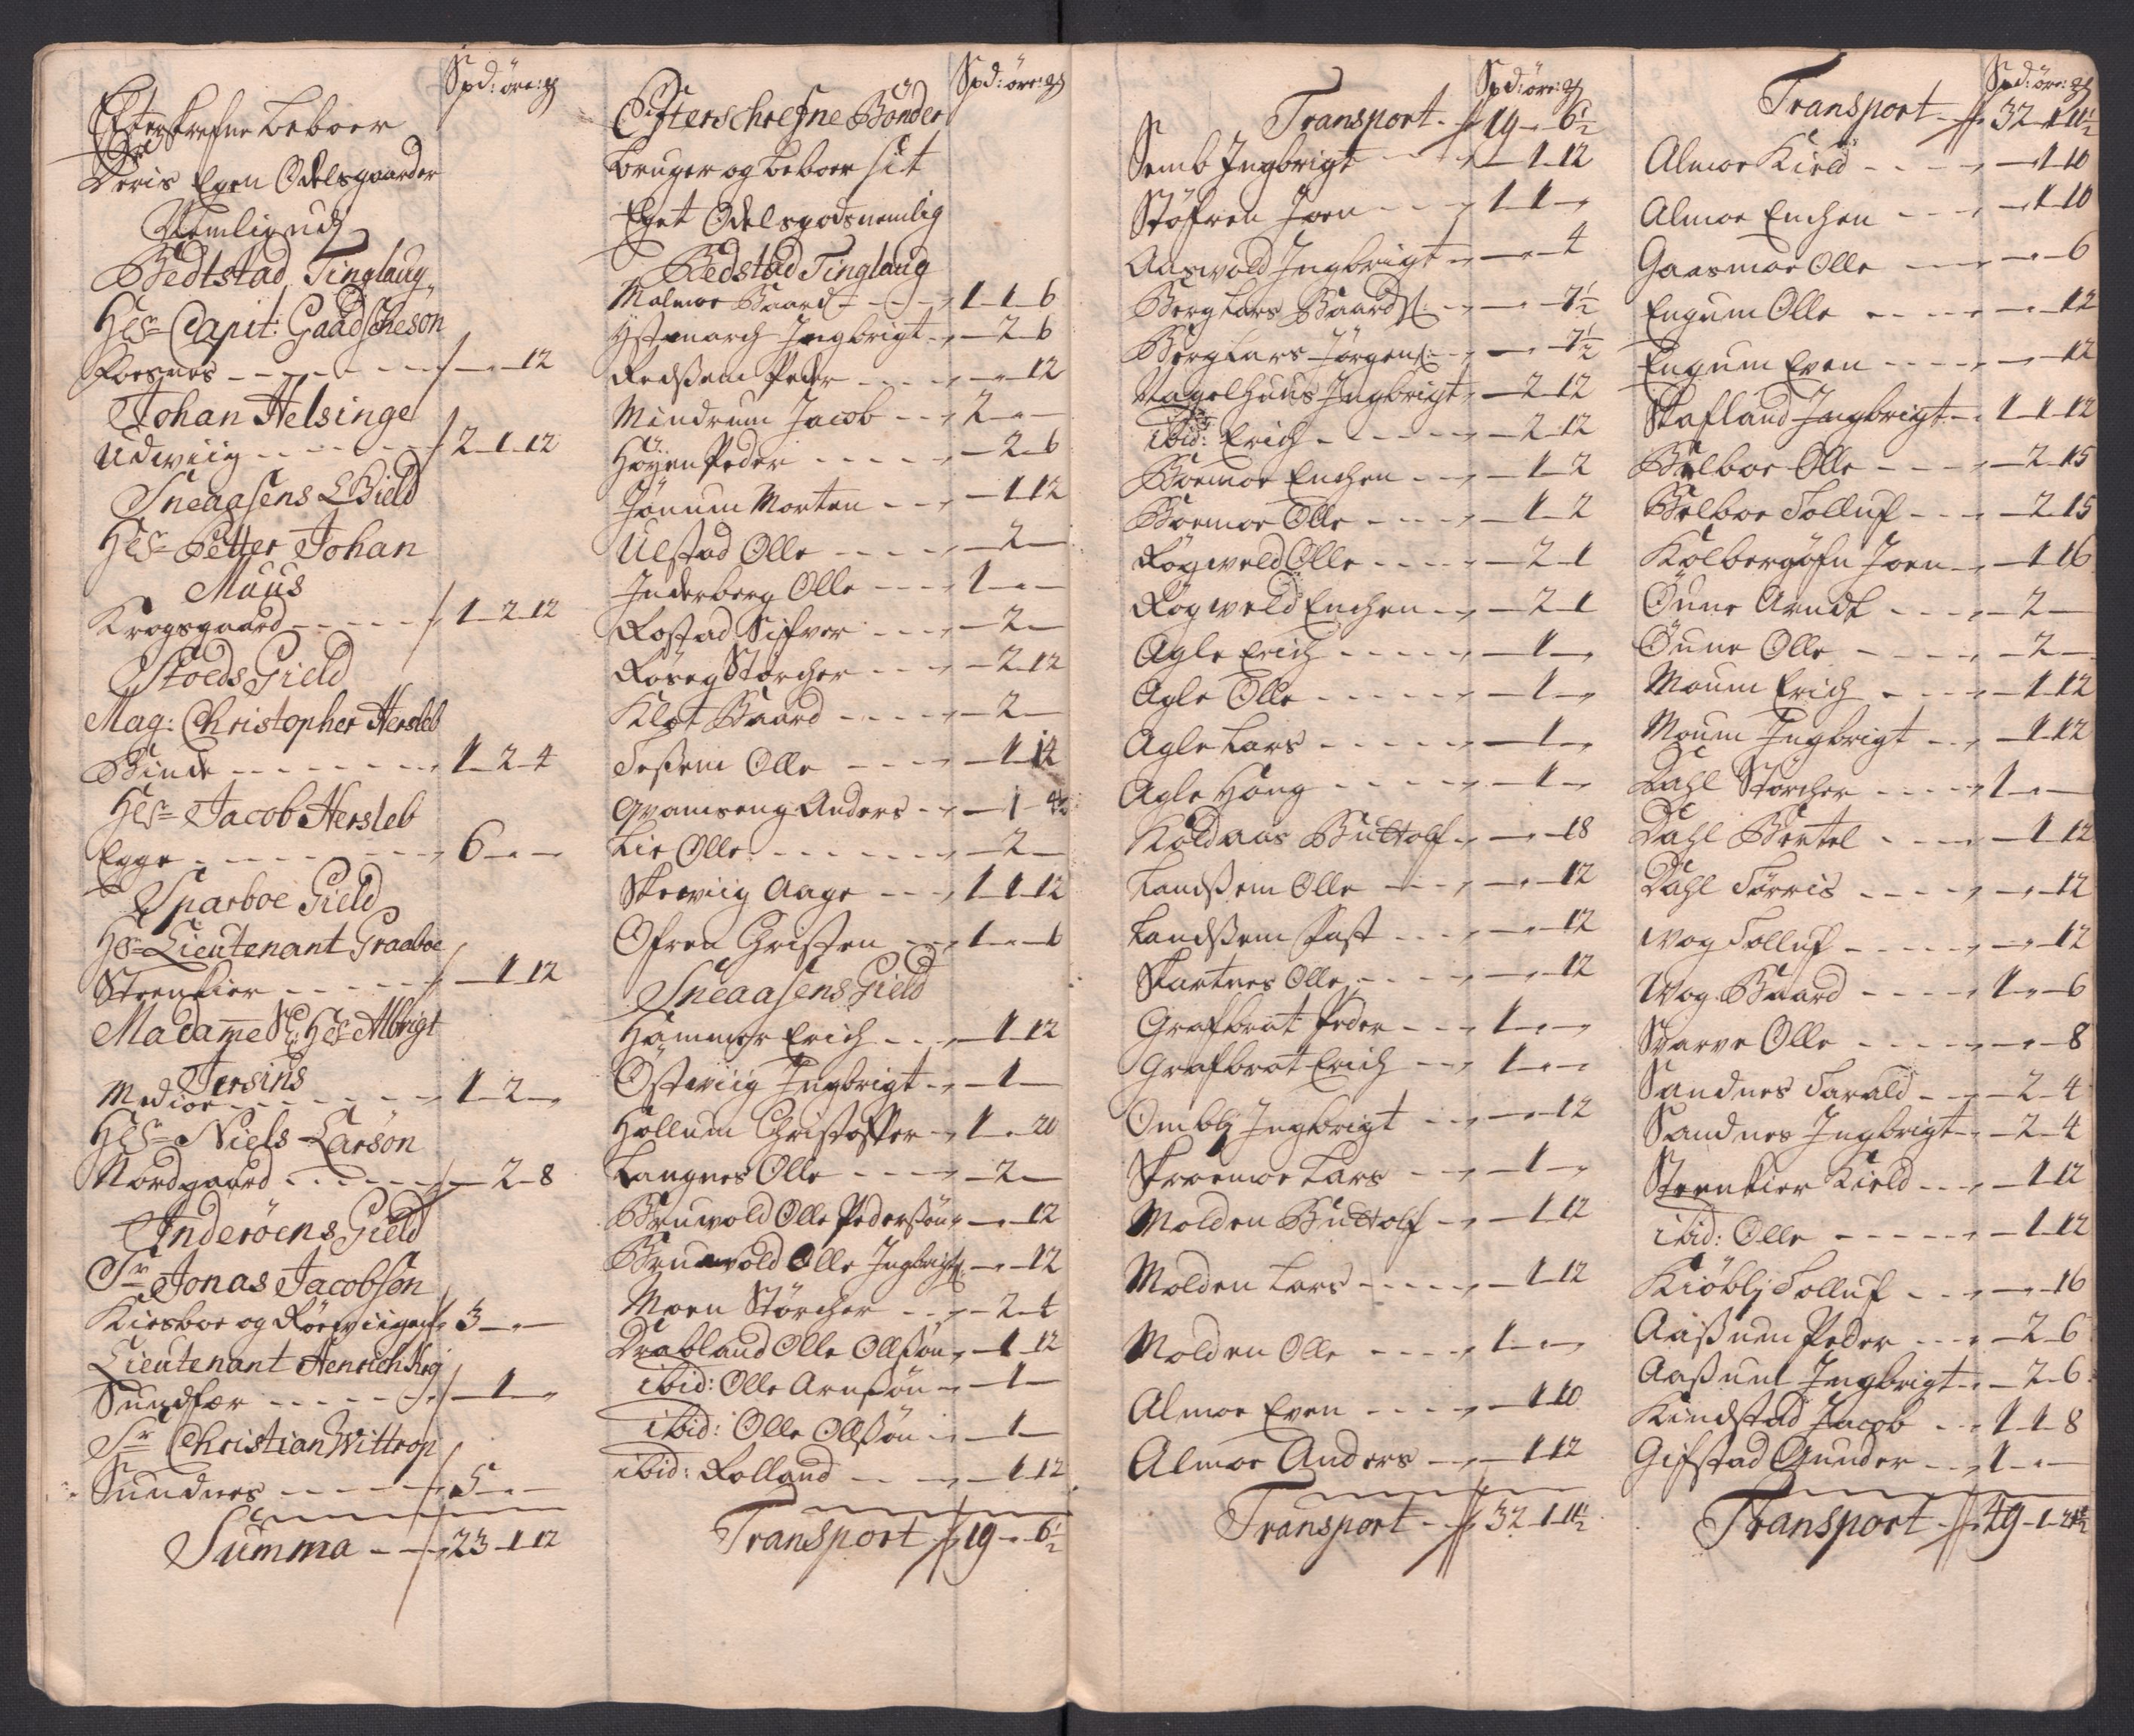 Spd: öre: 
Efterskrefne beboer
Deris Egen Odelsgaarder
Nemlig udj
Bedtstad Tinglaug
Hr Capit: Gaadscheson
Foesnes - - - - - 12
Johan Helsinge
Udwiig - - - - 2-1-12
Sneaasens Gield
Hr Petter Johan
Muus
Krogsgaard - - - 1-2-12
Stoeds Gield
Mag: Christopher Hersleb
Binde - - - - 1-2-4
Hr Jacob Hersleb
Egge - - - - 6 - -
Sparboe Gield
Hr Lieutenant Graaboe
Steenkier - - - - 1-12
Madamme Sl: Hr Albrigt
Jersins
Medioe - - - - 1-2-
Hr Niels Larsön
Nordgaard - - - - 2-8
Inderöens Gield
Sr Jonas Jacobsen
Kiesboe og Röewiigen 3 - -
Lieutenant Henrich Krog
Sundfær - - - - 1 -
Sr Christian Wittrop
Sundnes - - - - 5 - -
Summa - - 23-1-12
Spd: öre: 
Efterschrefne Bönder
bruger og beboer sit
Eget Odelsgods nemlig
Bedstad Tinglaug
Malmoe Baard - - - 1-1-6
Hstmarch Ingbrigt - - 2-6
Redßem Peder - - - - 12
Mindrum Jacob - - 2 - -
Höyen Peder - - - - 2-6
Jönum Morten - - - 1-12
Ulstad Olle - - - - 2 -
Inderberg Olle - - - 1 - -
Rostad Siffver - - - 2 -
Röseg Störcher - - - 2-12
Klot Baard - - - - 2 -
Toßem Olle - - - - 1-12
Qvamseng Anders - - 1-4½
Lie Olle - - - - 2 -
Skewiig Aage - - - 1-1-12
Ofren Christen - - 1 - 6
Sneaasens Gield
Hammer Erich - - - 1-12
Östwiig Ingbrigt - - 1 -
Hollum Christoffer - 1 - 20
Langnes Olle - - - 2 -
Bruwold Olle Pederßön - - 12
Bruwold Olle Ingbrigts: - - 12
Moen Störcher - - - 2-1
Drabland Olle Olßön - 1-12
ibid: Olle Arnßön - - 1 -
ibid: Olle Olßön - - 1 -
ibid: Rolland - - - 1-12
Transport 19 - 6½
Spd: öre: 
Transport - 19 - 6½
Semb Ingbrigt - - - 1-12
Stöfren Joen - - - 1-1 -
Aaswold Ingbrigt - - - 4
Berg Lars Baards: - - - 7½
Berg Lars Jörgens: - - - 7½
Nagelhuus Ingbrigt - 2-12
ibid: Erich - - - - 2-12
Boemoe Enchen - - - 1-2
Boemoe Olle - - - - 1-2
Rögweld Olle - - - - 2-1
Rögweld Enchen - - - 2-1
Agle Erich - - - - 1 -
Agle Olle - - - - 1 -
Agle Lars - - - - 1 -
Agle Haag - - - - 1 -
Koldaas Buttolf - - - 18
Landßem Olle - - - - 12
Landßem Past - - - - 12
Skartnes Olle - - - - 12
Grafbrot Peder - - - 1 - -
Grafbrot Erich - - 1 - -
Ombly Ingbrigt - - - 12
Skroemoe Lars - - - 1 -
Molden Buttolf - - - 1-12
Molden Lars - - - - 1-12
Molden Olle - - - - 1 - -
Almoe Even - - - - 1-10
Almoe Anders - - - 1-12
Transport - 32-1-11½
Spd: öre: 
Transport - 32-1-11½
Almoe Kield - - - - 1-10
Almoe Enchen - - - - 1-10
Gaasmoe Olle - - - - 6
Engum Olle - - - - - 12
Engum Even - - - - - 12
Stafland Ingbrigt - 1-1-12
Belboe Olle - - - - 2-15
Belboe Tolluf - - - 2-15
Kolbergöfn Joen - - 1-16
Öune Arndt - - - - 2 -
Öune Olle - - - - 2 -
Moum Erich - - - - 1-12
Moum Ingbrigt - - - 1-12
Dahl Störcher - - - 1 - -
Dahl Bertel - - - - 1-12
Dahl Torris - - - - - 12
Wog Tolluf - - - - - 12
Wog Baard - - - - 1 - 6
Svarve Olle - - - - - 8
Sandnes Tarald - - - 2-4
Sandnes Ingbrigt - - 2-4
Steenkier Kield - - - 1-12
ibid: Olle - - - - - 1-12
Kiöbly Tolluf - - - - 16
Aaßum Peder - - - 2-6
Aaßum Ingbrigt - - 2-6
Kindstad Jacob - - 1-1-8
Gifstad Gunder - - 1 - -
Transport 49-1-21½